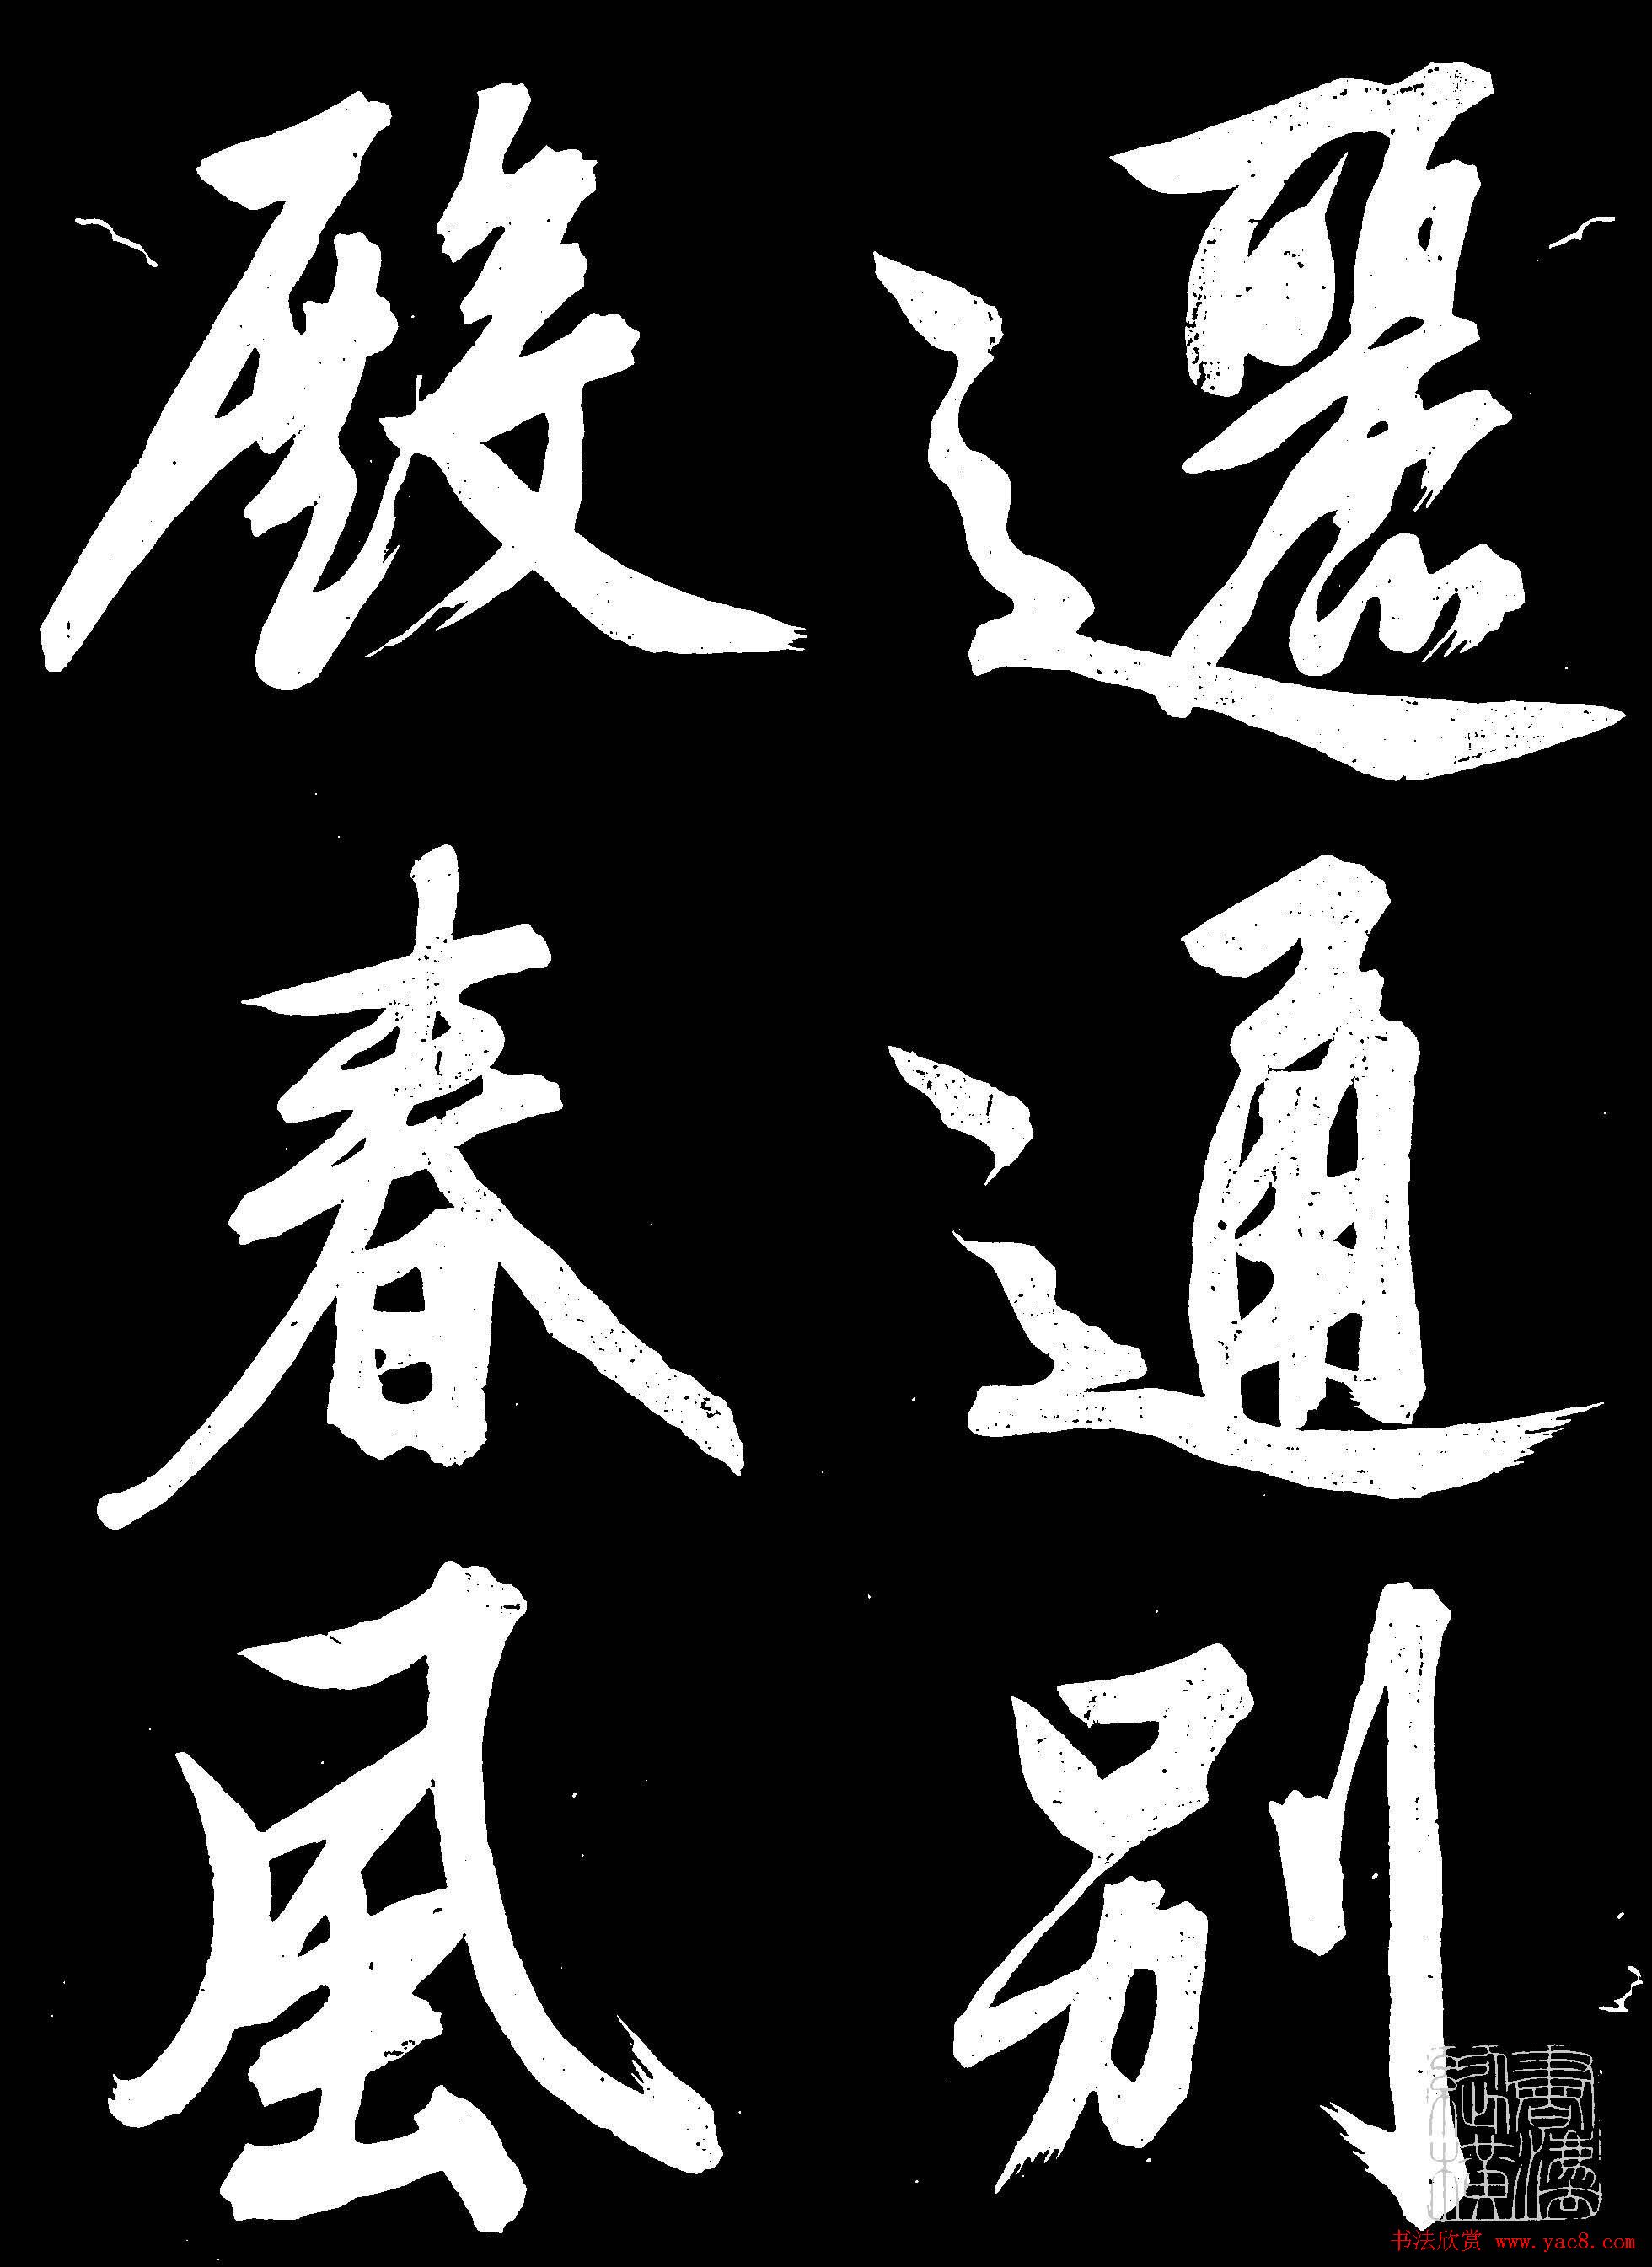 邐通別
殿春風
书法欣赏 www.yac8.com